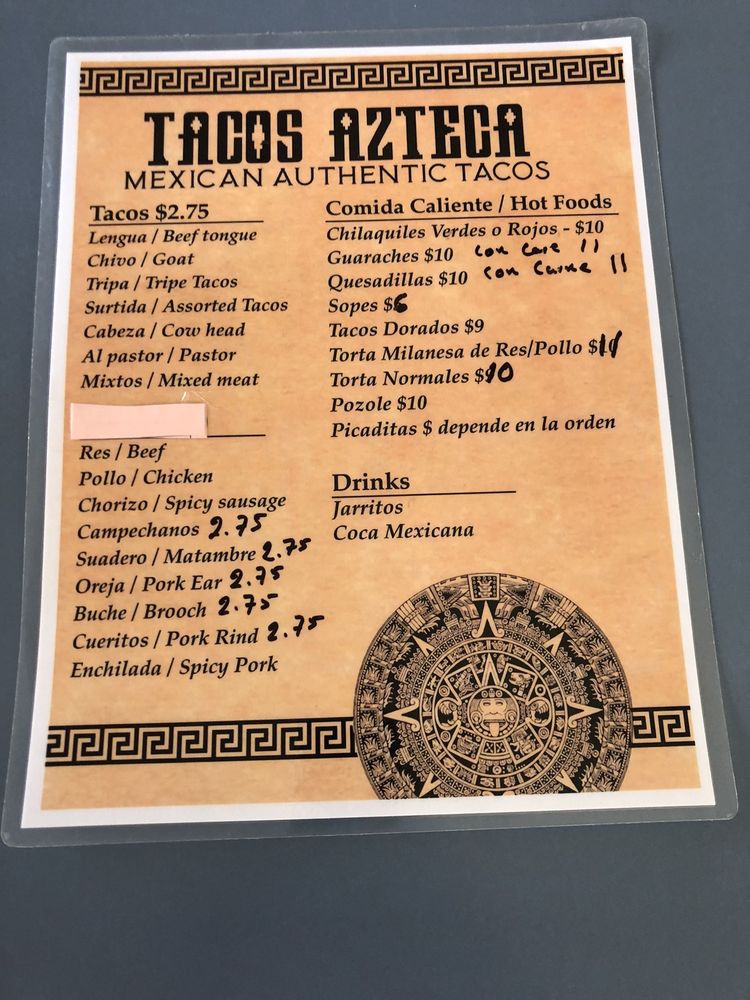 TACOS AZTECA
MEXICAN AUTHENTIC TACOS
Tacos $2.75
Lengua / Beef tongue
Chivo / Goat
Tripa / Tripe Tacos
Surtida / Assorted Tacos
Cabeza / Cow head
Al pastor / Pastor
Mixtos / Mixed meat
Res / Beef
Pollo / Chicken
Chorizo / Spicy sausage
Campechanos 2.75
Suadero / Matambre 2.75
Oreja / Pork Ear 2.75
Buche / Brooch 2.75
Cueritos / Pork Rind 2.75
Enchilada / Spicy Pork
Comida Caliente / Hot Foods
Chilaquiles Verdes o Rojos - $10
Guaraches $10 con 11
Quesadillas $10 con Carne 11
Sopes $6
Tacos Dorados $9
Torta Milanesa de Res/Pollo $11
Torta Normales $10
Pozole $10
Picaditas $ depende en la orden
Drinks
Jarritos
Coca Mexicana